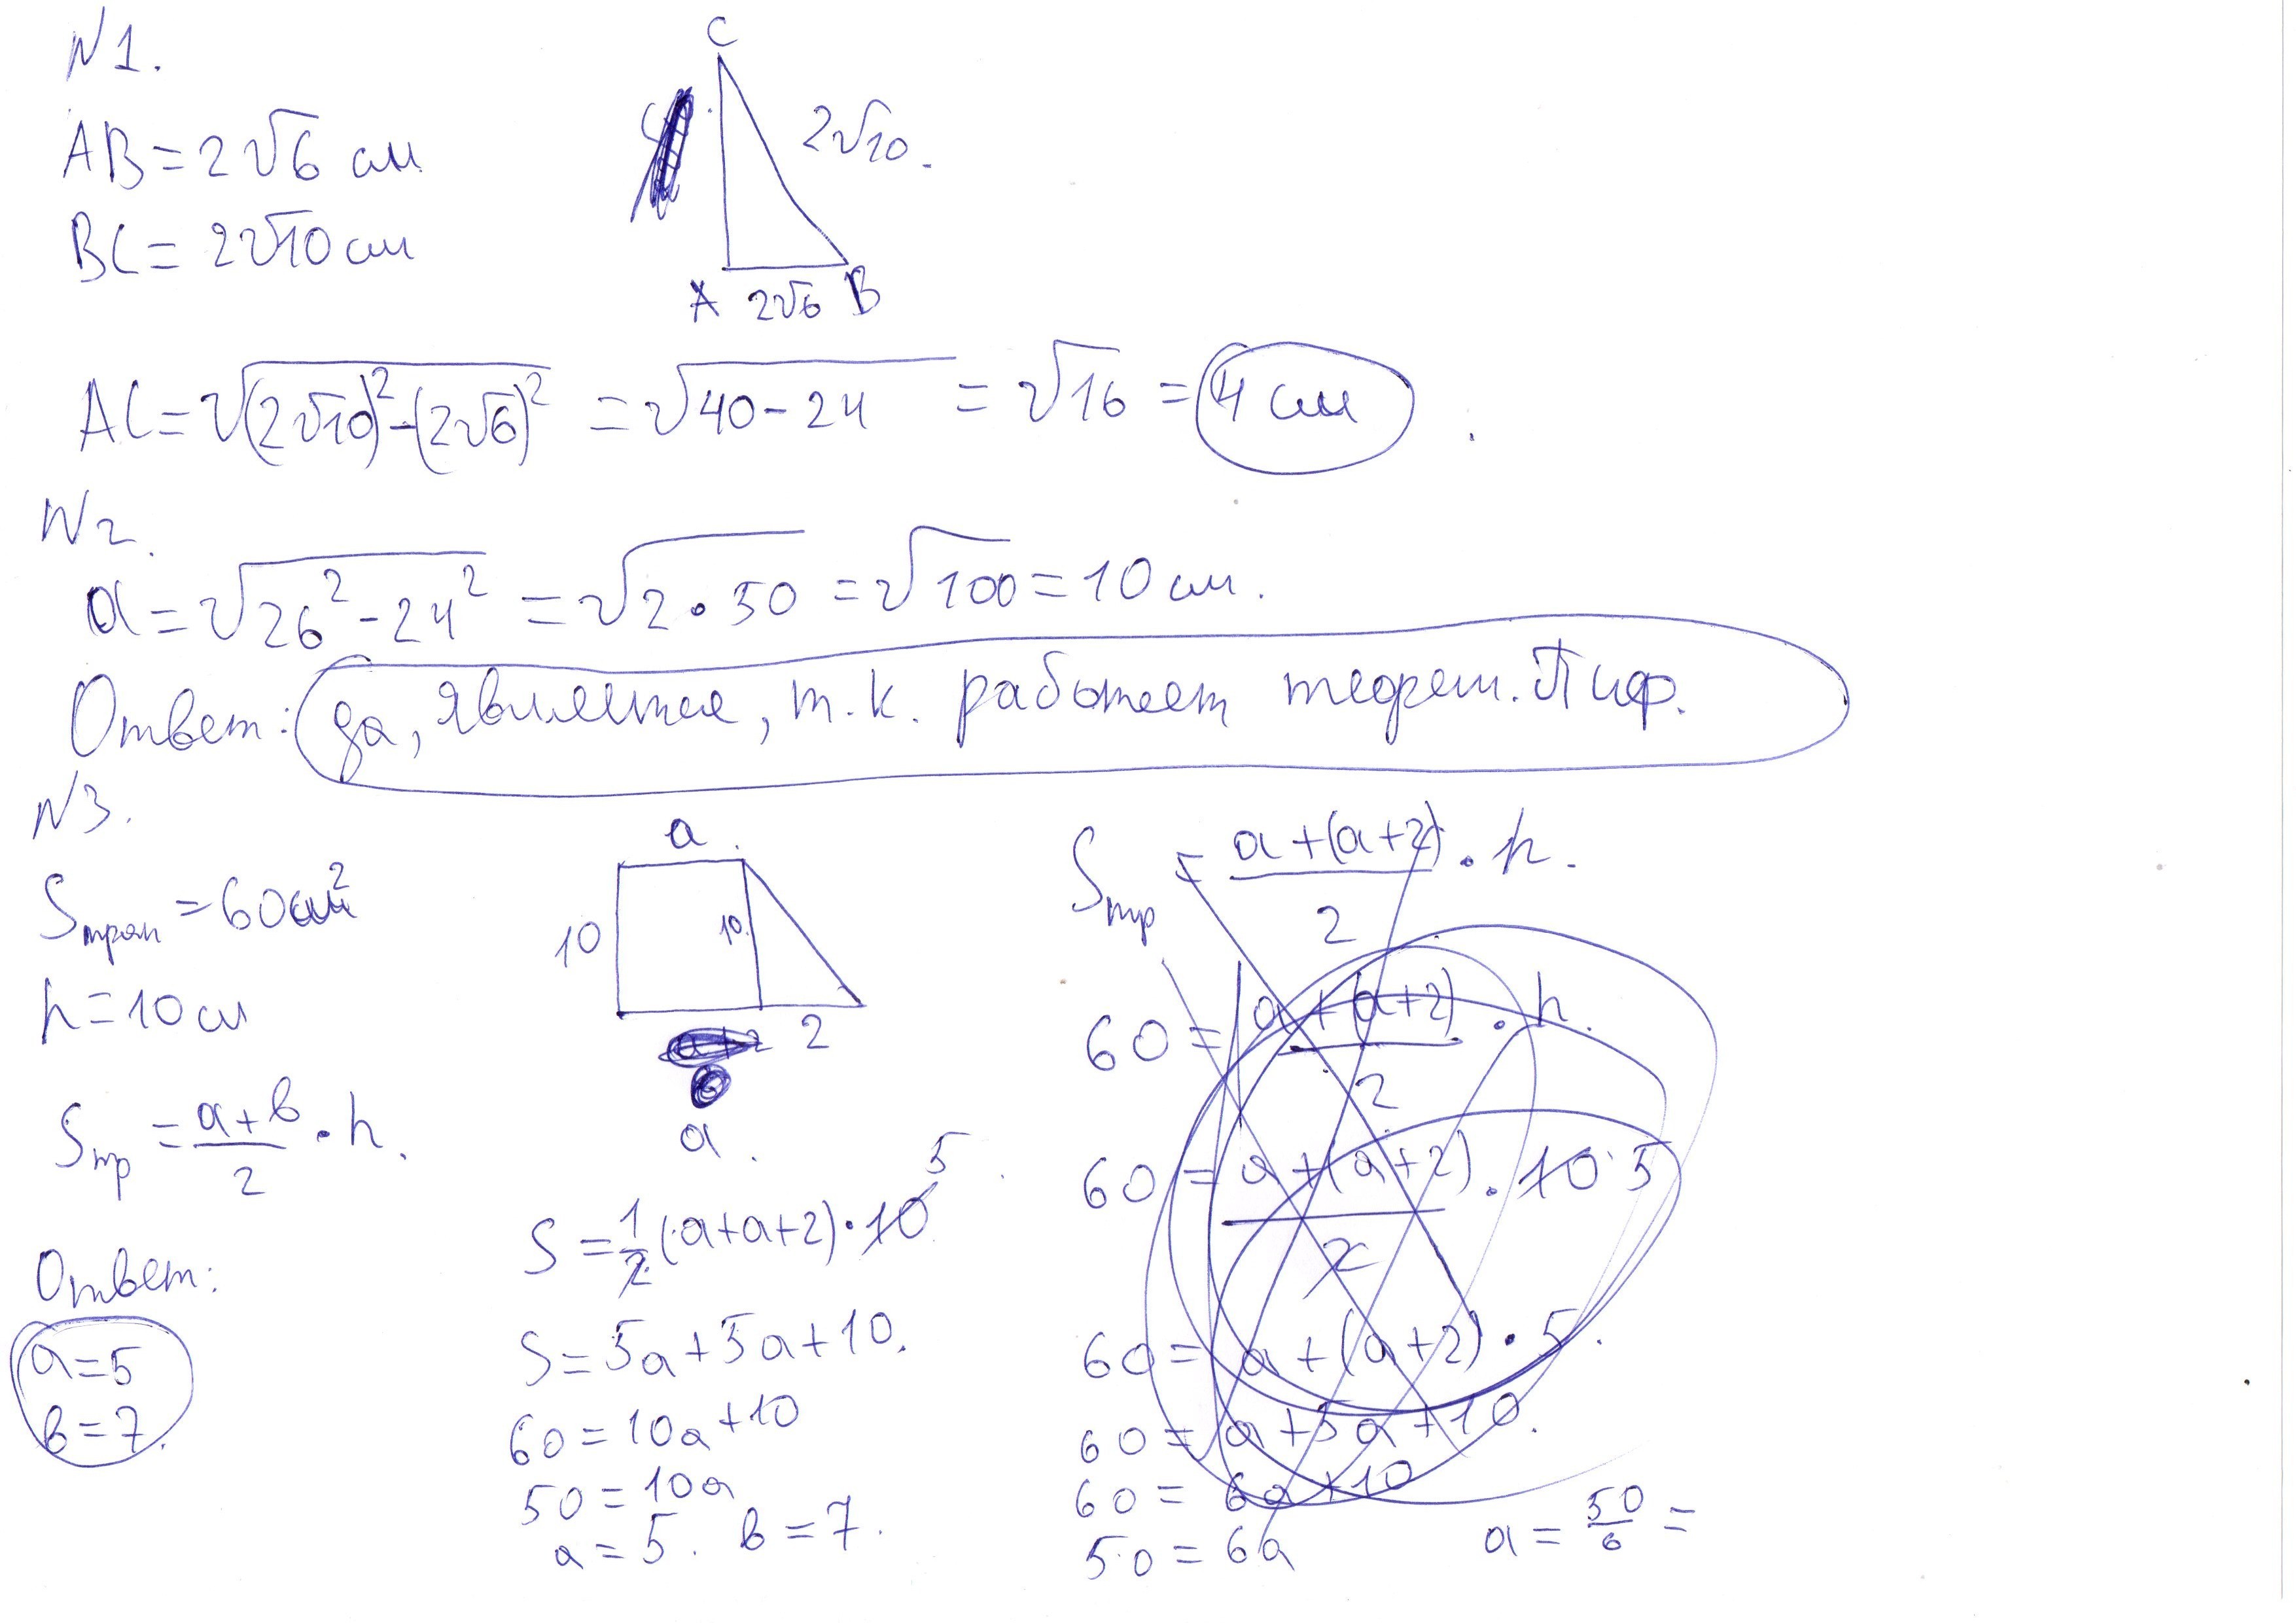 N1.
AB = 2√6 см
BC = 2√10 см
C
2√10.
A 2√6 B
AC = √(2√10)²-(2√6)² = √40-24 = √16 = 4 см
N2.
a = √26²-24² = √2•50 = √100 = 10 см.
Ответ: да, является, т.к. работает теорем. Пиф.
N3.
Sтрап = 60см²
h = 10 см
Sтр = a+b/2 • h.
Ответ:
a=5
b=7.
a
10
10.
2
a.
S = 1/2 (a+a+2)•10 5
S = 5a+5a+10.
60 = 10a+10
50 = 10a
a = 5. b = 7.
Sтр = a+(a+2)/2 • h.
60 = a+(a+2)/2 • h.
60 = a+(a+2)/2 • 10 5
60 = a+(a+2)•5.
60 = a+5a+10.
60 = 6a+10
50 = 6a
a = 50/6 =